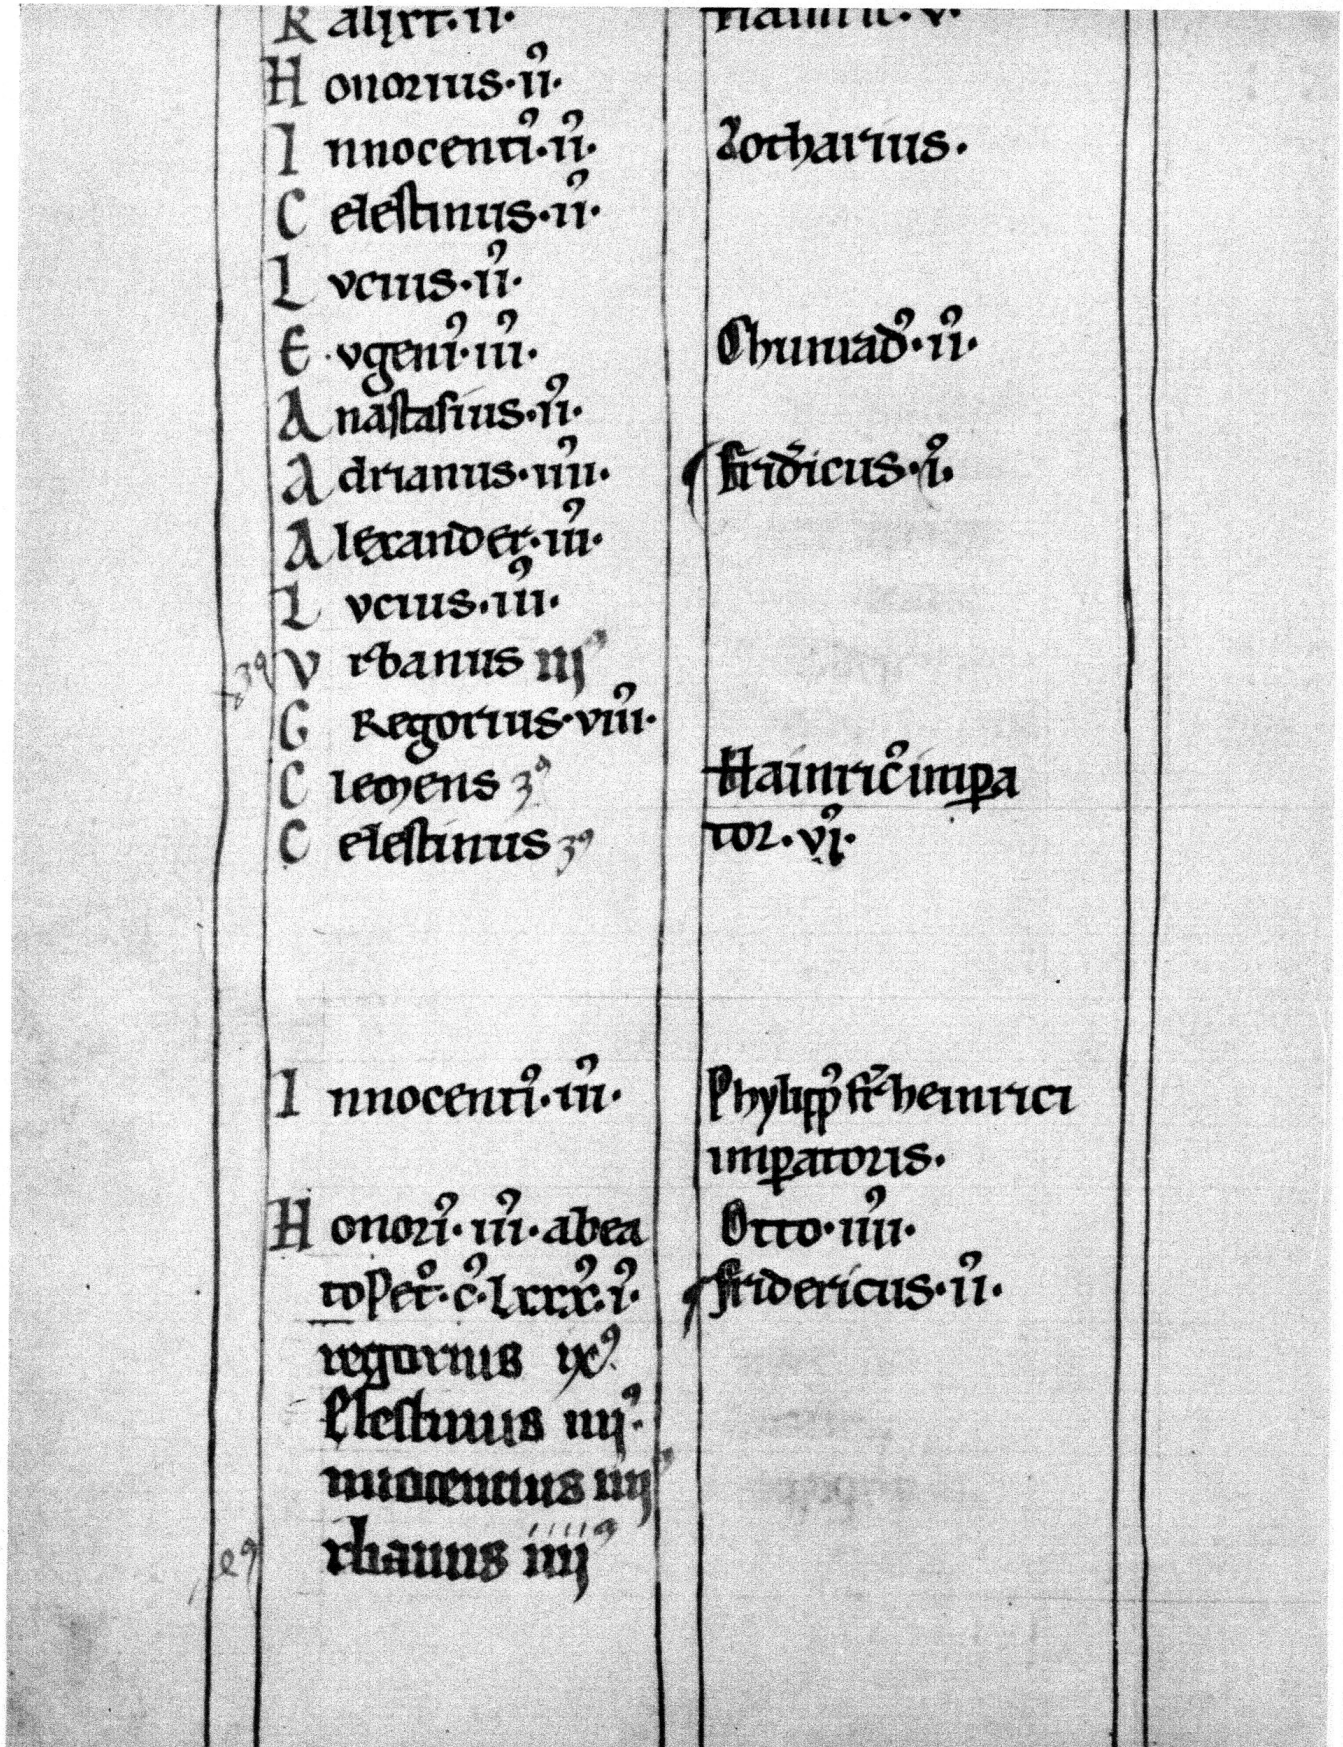 Kalixt·ii·
Honorius·ii᷒·
Innocenti᷒·ii᷒·
Celestinus·ii᷒·
Lvcius·ii᷒·
Evgeni᷒·iii᷒·
Anastasius·ii᷒·
Adrianus·iiii᷒·
Alexander·iii᷒·
Lvcius·iii᷒·
Vrbanus iij᷒
GRegorius·viii᷒·
Clemens 3᷒
Celestinus 3᷒
Innocenti᷒·iii᷒·
Honori᷒·iii᷒·abea
to Pet᷒·c᷒·Lxxx᷒·i᷒·
regorius ix᷒
Elestinus iiij᷒·
nnocentius iiij᷒
rbanus iiij᷒
Hainric·v·
Lotharius·
Chunrad᷒·ii᷒·
frid͛icus·i᷒·
Hainric᷒ imꝑa
tor·vi᷒·
Phylipp᷒ fr̄ heinrici
imꝑatoris·
Otto·iiii᷒·
fridericus·ii᷒·